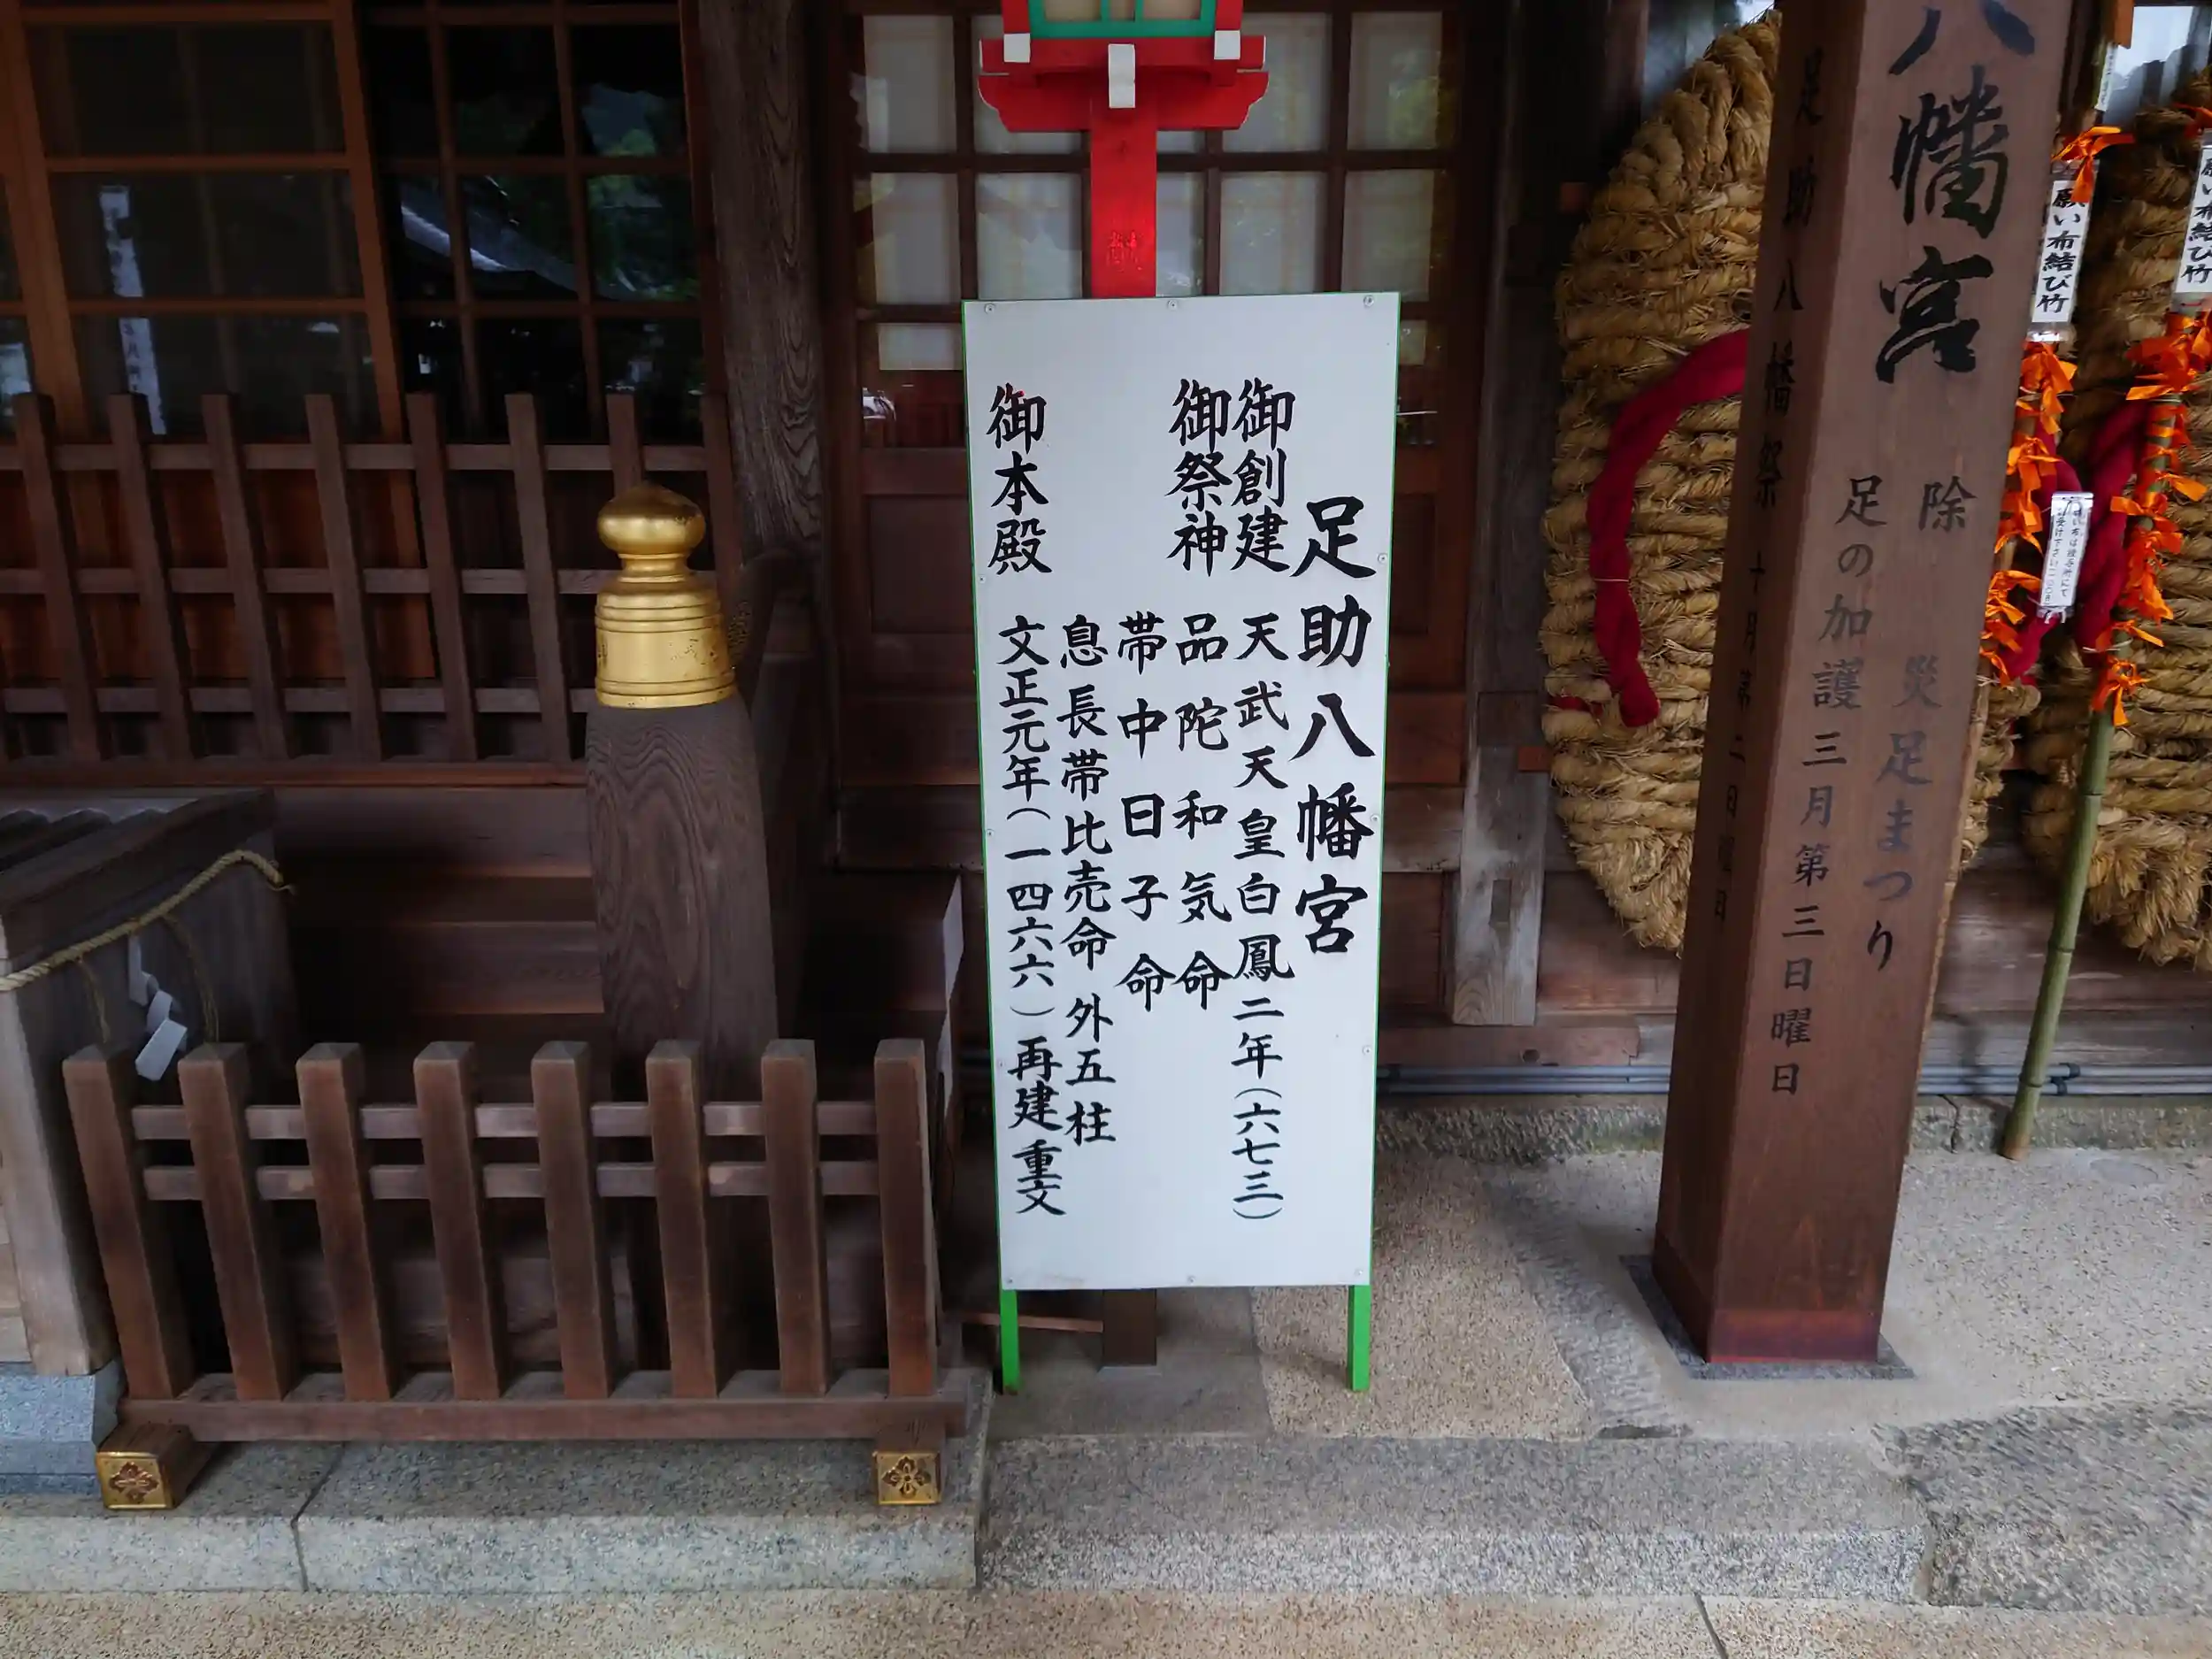 足助八幡宮
御創建 天武天皇白鳳二年(六七三)
御祭神 品陀和気命
帯中日子命
息長帯比売命 外五柱
御本殿 文正元年(一四六六)再建 重文
八幡宮
除災足まつり
足の加護 三月第三日曜日
足助八幡祭 十月第二日曜日
願い布結び竹
願い布結び竹